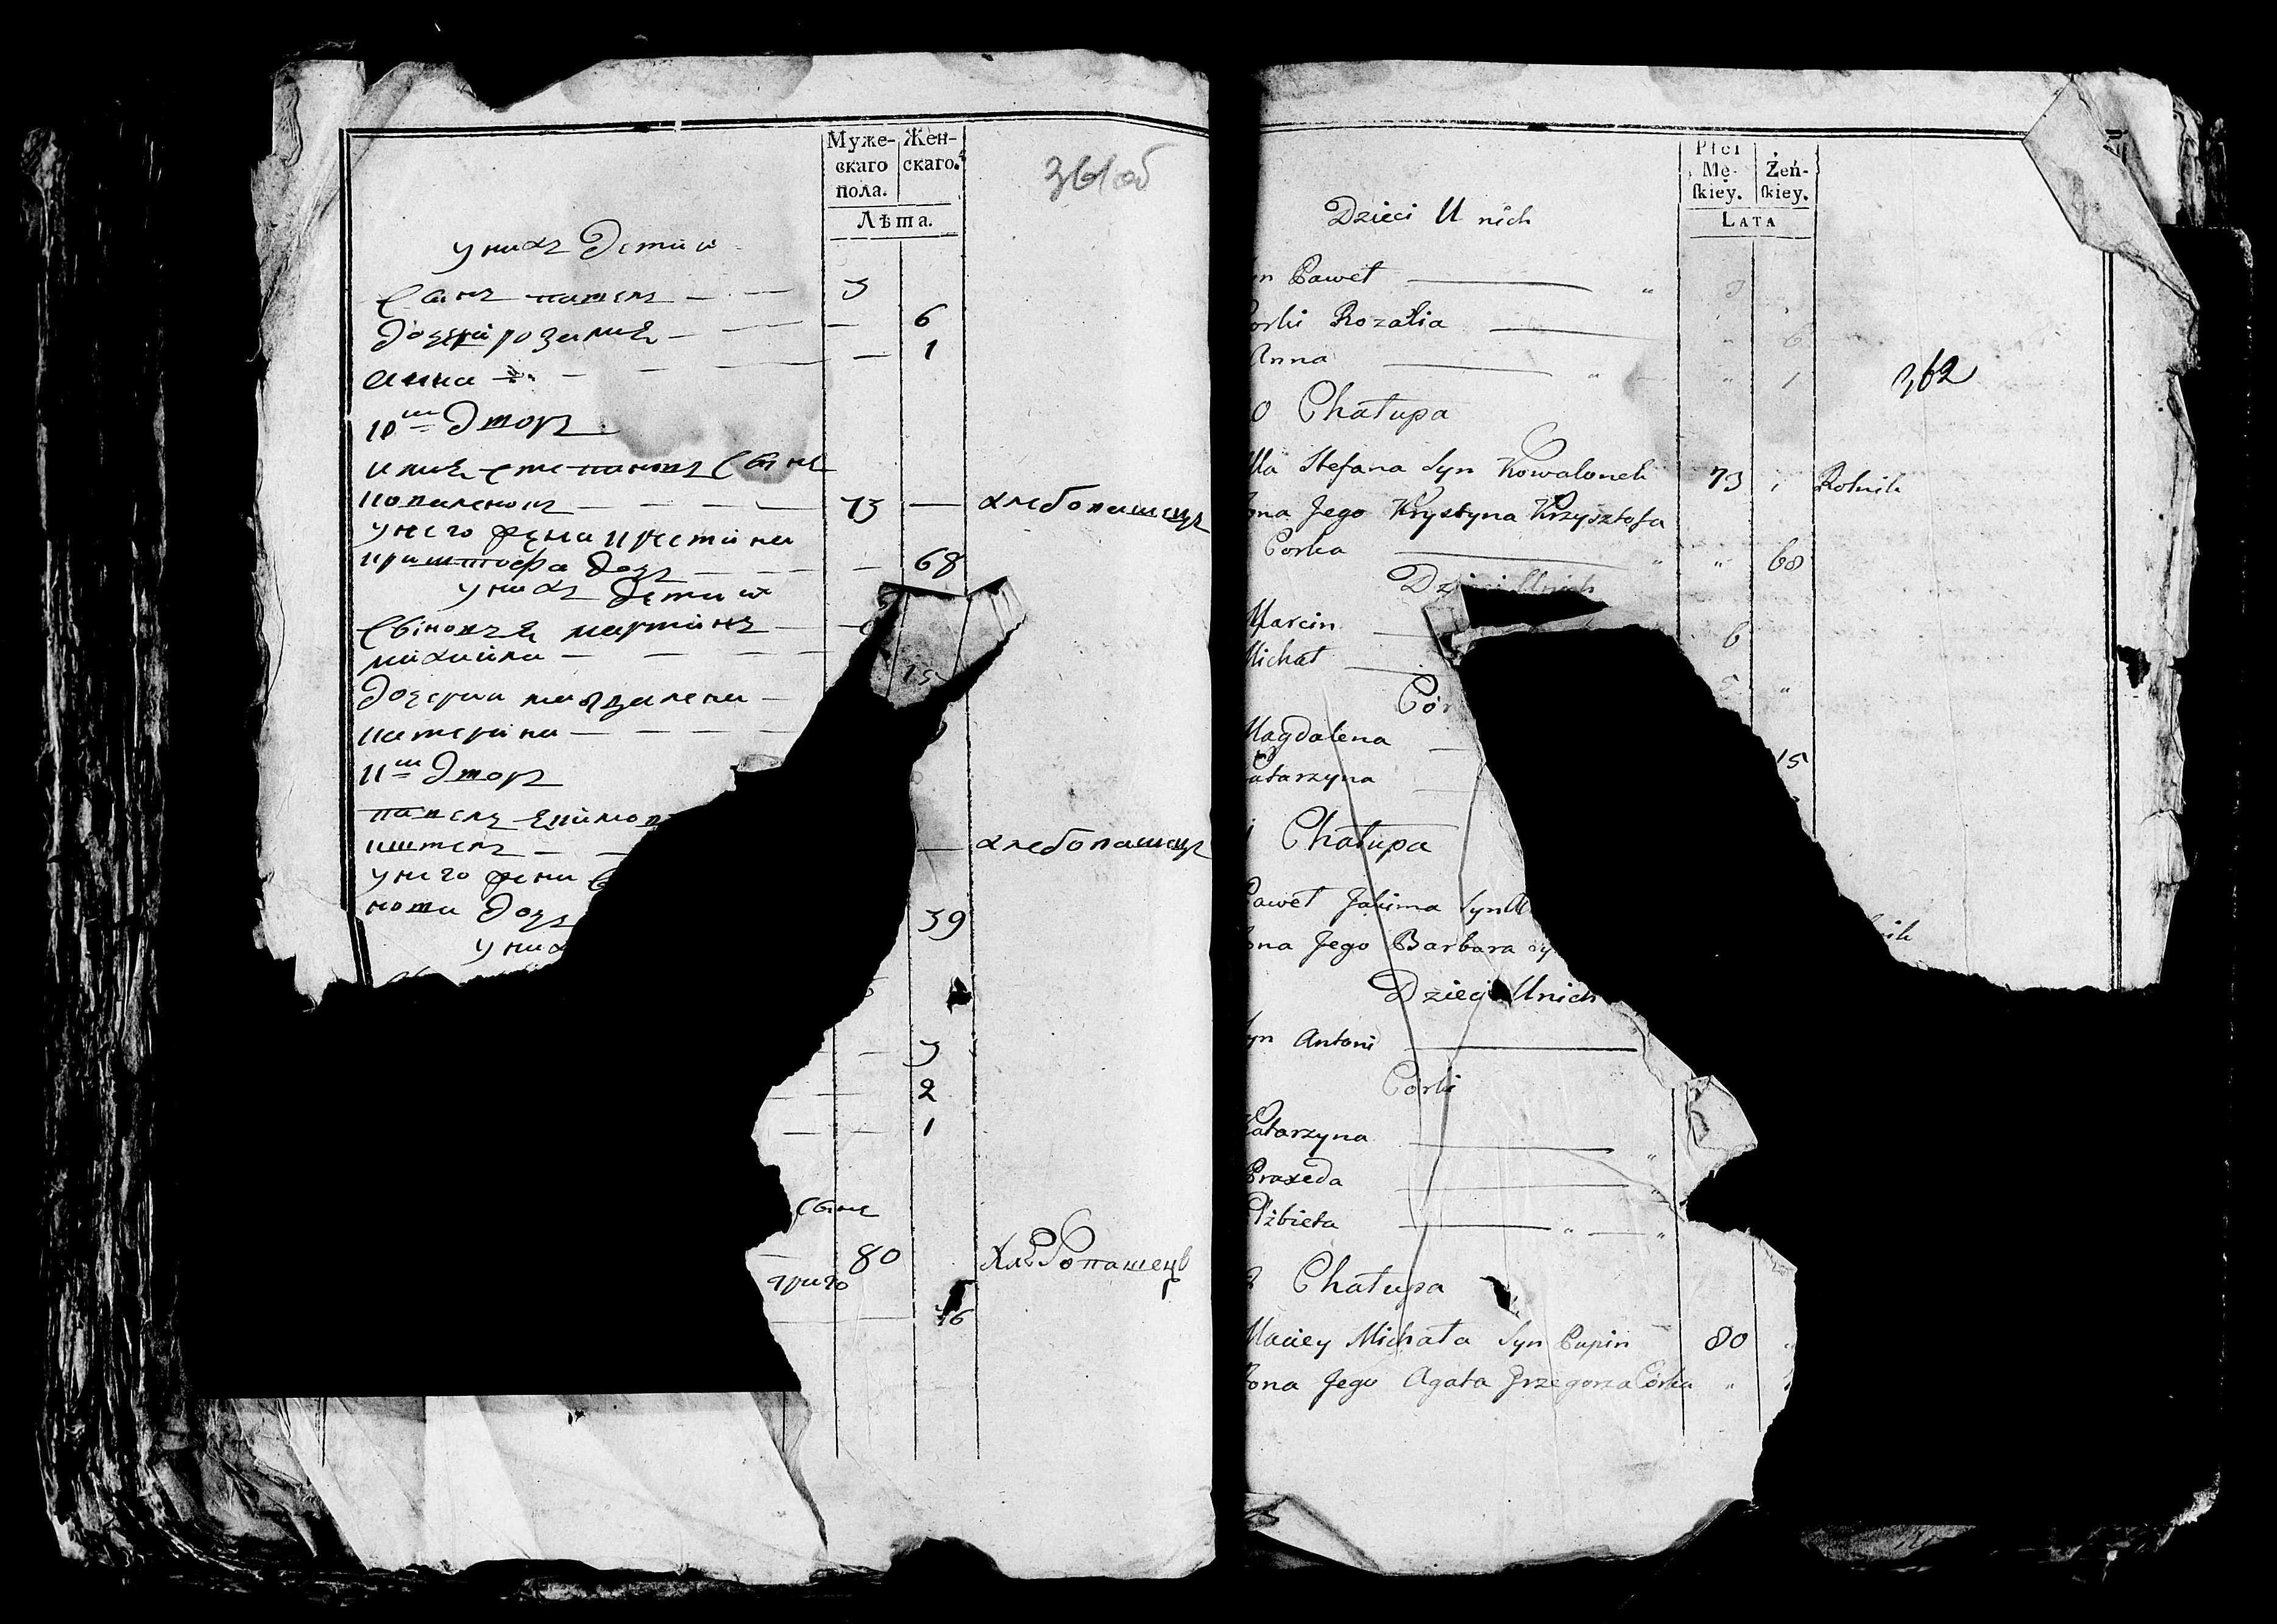 Муже-
скаго
пола.
Жен-
скаго.
Лѣта.
361 об
у нихъ детий
Сынъ павелъ 3
дочери розалия 6
анна 1
10 двор
илия степановъ Сынъ
коваленокъ 73 хлебопашецъ
у него жена кристина
криштофа доч 68
у нихъ детий
Сыновья мартинъ
михаила
дочерии магдалена 15
катерина
11 двор
павелъ якимов
хлебопашецъ
у него жена
дочъ 39
у них
3
2
1
Сынъ
80 Хлѣбопашецъ
григо
76
Płci
Mę-
skiey.
Żeń-
skiey.
LATA
362
Dzieci U nich
n Paweł 3
orki Rozalia 6
Anna 1
0 Chałupa
lla Stefana Syn Kowalonek 73 Rolnik
ona Jego Krystyna Krzysztofa
Corka 68
Dzieci Unich
Marcin 6
Michał
Cór
Magdalena 15
Katarzyna
Chałupa
Paweł Jakima Syn
ona Jego Barbara
nik
Dzieci Unich
Syn Antoni
Córki
Katarzyna
Praxeda
Elżbieta
Chałupa
Maciey Michała Syn Pupin 80
Zona Jego Agata Grzegorza Córka